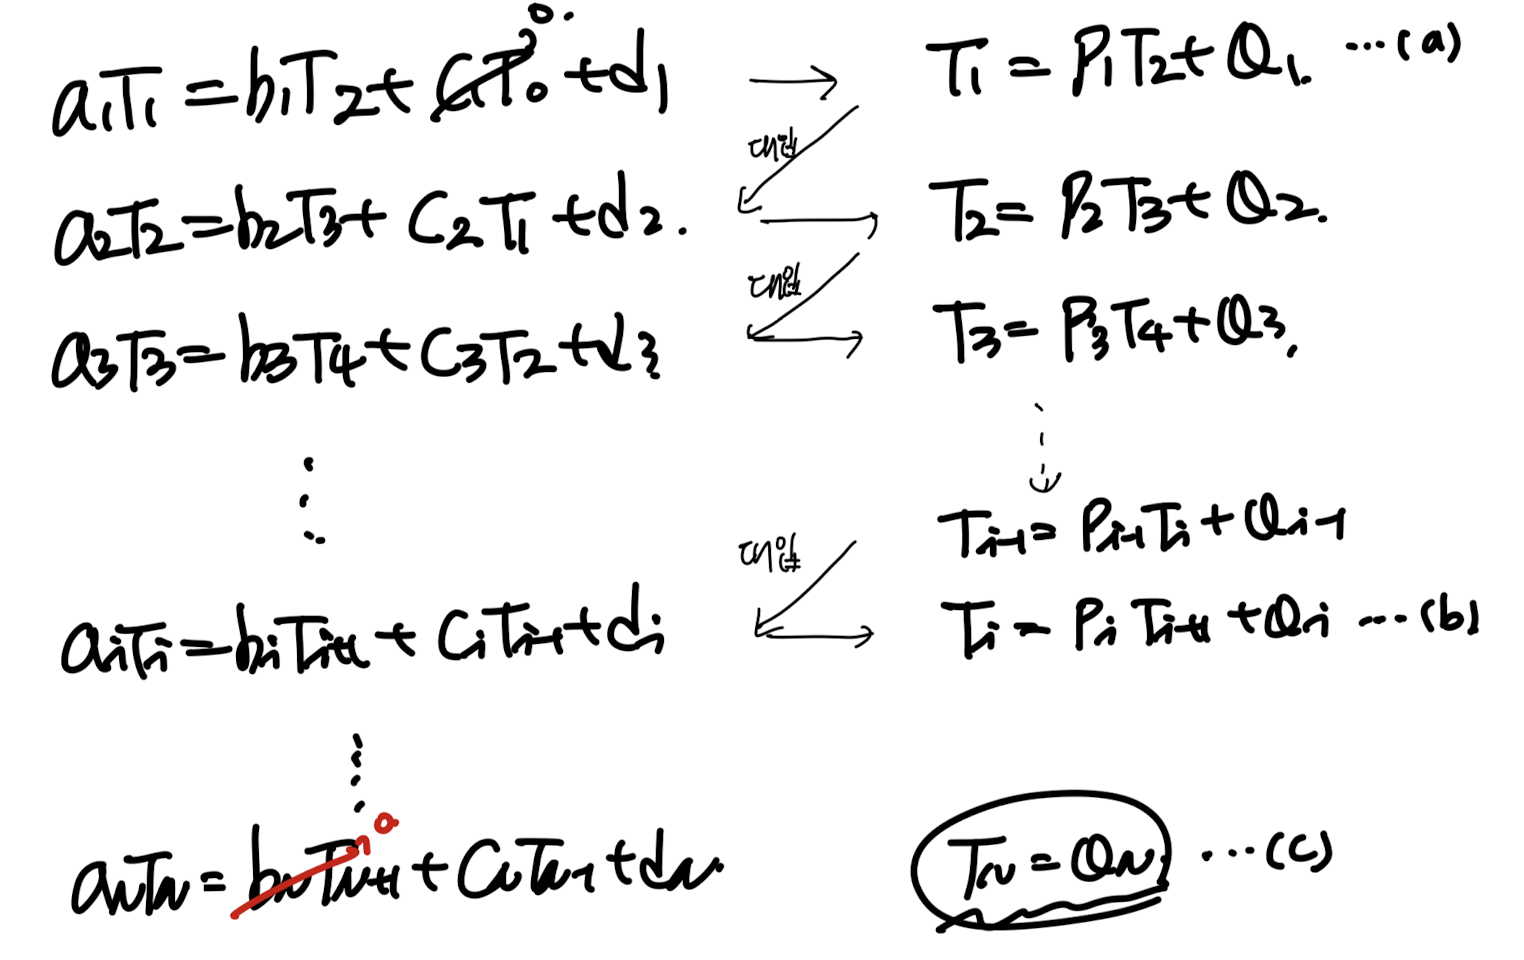 a₁T₁ = b₁T₂ + C₁T₀ + d₁ → T₁ = P₁T₂ + Q₁. ...(a)
0.
대입
a₂T₂ = b₂T₃ + C₂T₁ + d₂. → T₂ = P₂T₃ + Q₂.
대입
a₃T₃ = b₃T₄ + C₃T₂ + d₃ → T₃ = P₃T₄ + Q₃.
Tᵢ₋₁ = Pᵢ₋₁Tᵢ + Qᵢ₋₁
대입
aᵢTᵢ = bᵢTᵢ₊₁ + CᵢTᵢ₋₁ + dᵢ → Tᵢ = PᵢTᵢ₊₁ + Qᵢ ...(b)
0
a_N T_N = b_N T_N+1 + C_N T_N-1 + d_N. T_N = Q_N. ...(c)